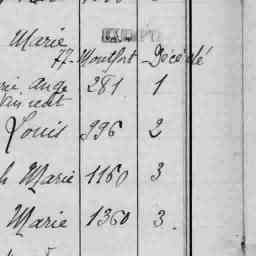 Marie
77 - Montfort - Décédé
rie Ange 281 1
Louis 996 2
h Marie 1160 3
Marie 1360 3.